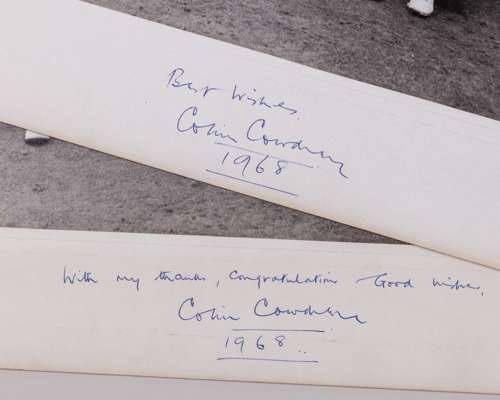 Best Wishes,
Colin Cowdrey
1968
With my thanks, congratulations Good wishes,
Colin Cowdrey
1968